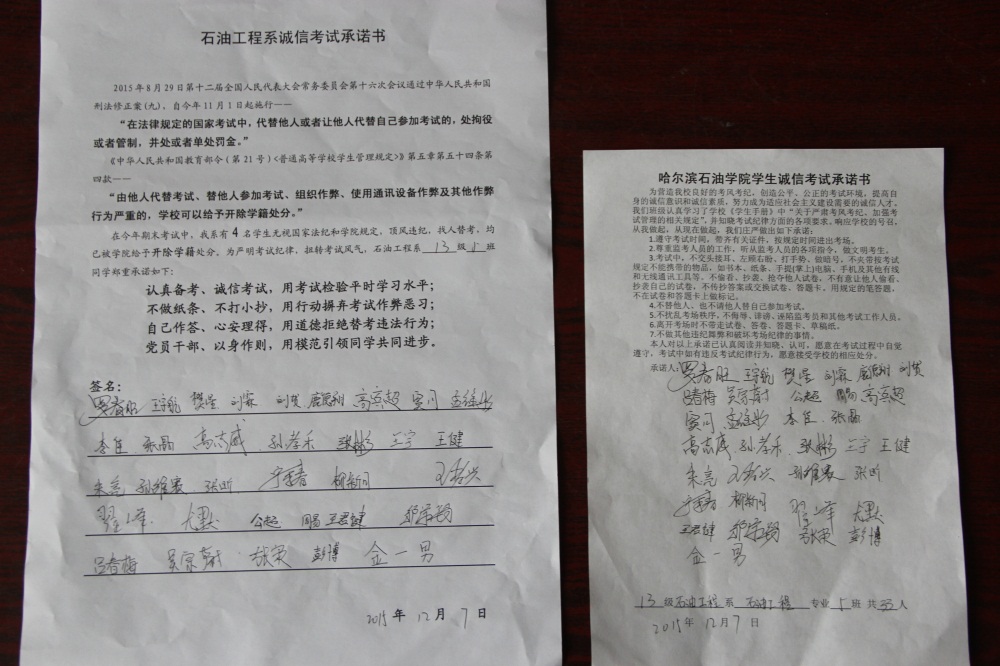 石油工程系诚信考试承诺书
2015年8月29日第十二届全国人民代表大会常务委员会第十六次会议通过中华人民共和国
刑法修正案(九),自今年11月1日起施行——
“在法律规定的国家考试中,代替他人或者让他人代替自己参加考试的,处拘役
或者管制,并处或者单处罚金。”
《中华人民共和国教育部令(第21号)<普通高等学校学生管理规定>》第五章第五十四条第
四款——
“由他人代替考试、替他人参加考试、组织作弊、使用通讯设备作弊及其他作弊
行为严重的,学校可以给予开除学籍处分。”
在今年期末考试中,我系有4名学生无视国家法纪和学院规定,顶风违纪,找人替考,均
已被学院给予开除学籍处分。为严明考试纪律,扭转考试风气,石油工程系 13 级 5 班
同学郑重承诺如下:
认真备考、诚信考试,用考试检验平时学习水平;
不做纸条、不打小抄,用行动摒弃考试作弊恶习;
自己作答、心安理得,用道德拒绝替考违法行为;
党员干部、以身作则,用模范引领同学共同进步。
签名:
王宇航 樊星 刘霖 刘贺 高京超
李佳 张晶 高志威 孙孝乐 张彬 兰宇 王健
朱亮 孙雄震 张昕 柳新同
翟峰 尤默 公超 王君健
吕春梅 张荣 彭博 金一男
2015年12月7日
哈尔滨石油学院学生诚信考试承诺书
为营造我校良好的考风考纪,创造公平、公正的考试环境,提高自
身的诚信意识和诚信素质,努力成为适应社会主义建设需要的诚信人才,
我们班级认真学习了学校《学生手册》中“关于严肃考风考纪、加强考
试管理的相关规定”,并知晓考试纪律方面的各项要求,响应学校的号召,
从我做起,从现在做起,我们庄严做出如下承诺:
1.遵守考试时间,带齐有关证件,按规定时间进出考场。
2.尊重监考人员的工作,听从监考人员的各项指令,做文明考生。
3.考试中,不交头接耳、左顾右盼,打手势、做暗号,不夹带按考试
规定不能携带的物品,如书本、纸条、手提(掌上)电脑、手机及其他有线
和无线通讯工具等,不偷看、抄袭、抢夺他人试卷,不有意让他人偷看、
抄袭自己的试卷,不传抄答案或交换试卷、答题卡。用规定的笔答题,
不在试卷和答题卡上做标记。
4.不替他人、也不请他人替自己参加考试。
5.不扰乱考场秩序,不侮辱、诽谤、诬陷监考员和其他考试工作人员。
6.离开考场时不带走试卷、答卷、答题卡、草稿纸。
7.不做其他违纪舞弊和破坏考场纪律的事情。
本人对以上承诺已认真阅读并知晓、认可,愿意在考试过程中自觉
遵守,考试中如有违反考试纪律行为,愿意接受学校的相应处分。
承诺人: 王宇航 樊星 刘霖 刘贺
吕春梅 公超 高京超
李佳 张晶
高志威 孙孝乐 张彬 兰宇 王健
朱亮 孙雄震 张昕
柳新同 翟峰 尤默
王君健 张荣 彭博
金一男
13 级 石油工程 系 石油工程 专业 5 班 共 33 人
2015年12月7日